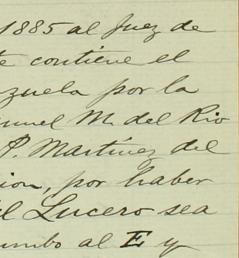 1885 al Juez de
te contiene el
zuela por la
nuel M. del Rio
P. Martinez del
cion, por haber
il Lucero sea
umbo al E y